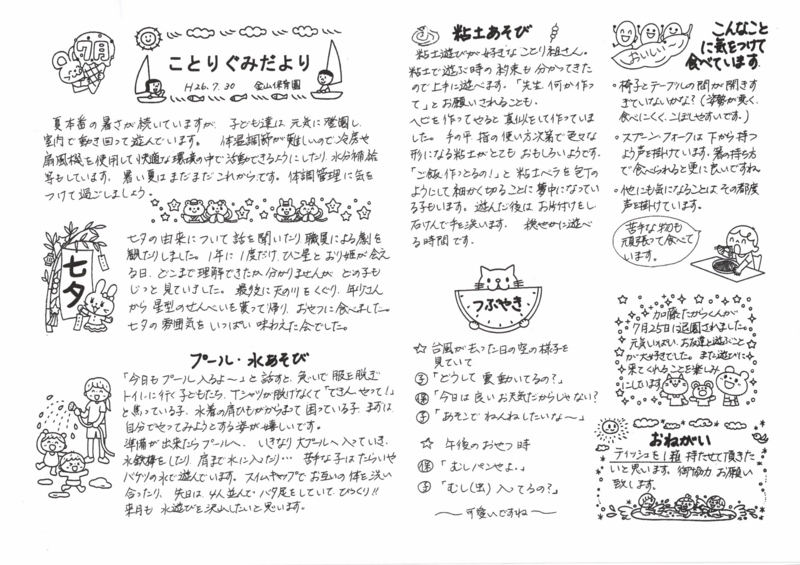 7月
ことりぐみだより
H26.7.30 金山保育園
夏本番の暑さが続いていますが、子ども達は元気に登園し、
室内で動き回って遊んでいます。 体温調節が難しいので冷房や
扇風機を使用して快適な環境の中で活動できるようにしたり、水分補給
等もしています。暑い夏はまだまだこれからです。体調管理に気を
つけて過ごしましょう。
七夕
七夕の由来について話を聞いたり職員による劇を
観たりしました。1年に1度だけひこ星とおり姫が会え
る日、どこまで理解できたか分かりませんが、どの子も
じっと見ていました。最後に天の川をくぐり、年りさん
から星型のせんべいを貰って帰り、おやつに食べました。
七夕の雰囲気をいっぱい味わえた会でした。
プール・水あそび
「今日もプール入るよ〜」と話すと、急いで服を脱ぎ
トイレに行く子どもたち。Tシャツが脱げなくて「できん、やって!」
と焦っている子、水着の肩ひもがからまって困っている子 まずは、
自分でやってみようとする姿が嬉しいです。
準備が出来たらプールへ、いきなり大プールへ入っていき、
水鉄砲をしたり、肩まで水に入ったり… 苦手な子はたらいや
バケツの水で遊んでいます。スイムキャップでお互いの体を洗い
合ったり、先日は、4人並んでバタ足をしていてびっくり!!
来月も水遊びを沢山したいと思います。
粘土あそび
粘土遊びが好きなことり組さん。
粘土で遊ぶ時の約束も分かってきた
ので上手に遊べます。「先生、何か作っ
て」とお願いされることも。
ヘビを作ってやると真似をして作っていま
した。手の平、指の使い方次第で色々な
形になる粘土がとてもおもしろいようです。
「ご飯作っとるの!」と粘土ベラを包丁の
ようにして細かく切ることに夢中になってい
る子もいます。遊んだ後はお片付けをし、
石けんで手を洗います。 穏やかに遊べ
る時間です。
つぶやき
☆ 台風が去った日の空の様子を
見ていて
子「どうして雲動いてるの?」
保「今日は良いお天気だからじゃない?
子「あそこでねんねしたいな〜」
☆ 午後のおやつ時
保「むしパンやよ。」
子「むし(虫)入ってるの?」
〜可愛いですね〜
おいしい〜
こんなこと
に気をつけて
食べています.
・椅子とテーブルの間が開きす
ぎていないかな?(姿勢が悪く、
食べにくく、こぼしやすいです。)
・スプーン、フォークは下から持つ
よう声を掛けています。箸の持ち方
で食べられると更に良いですね
・他にも気になることは、その都度
声を掛けています。
苦手な物も
頑張って食べて
います。
加藤たからくんが
7月25日に退園されました。
元気いっぱい、お友達と遊ぶこと
が大好きでした。また遊びに
来てくれることを楽しみ
にしています
おねがい
ティッシュを1箱 持たせて頂きた
いと思います。御協力お願い
致します。